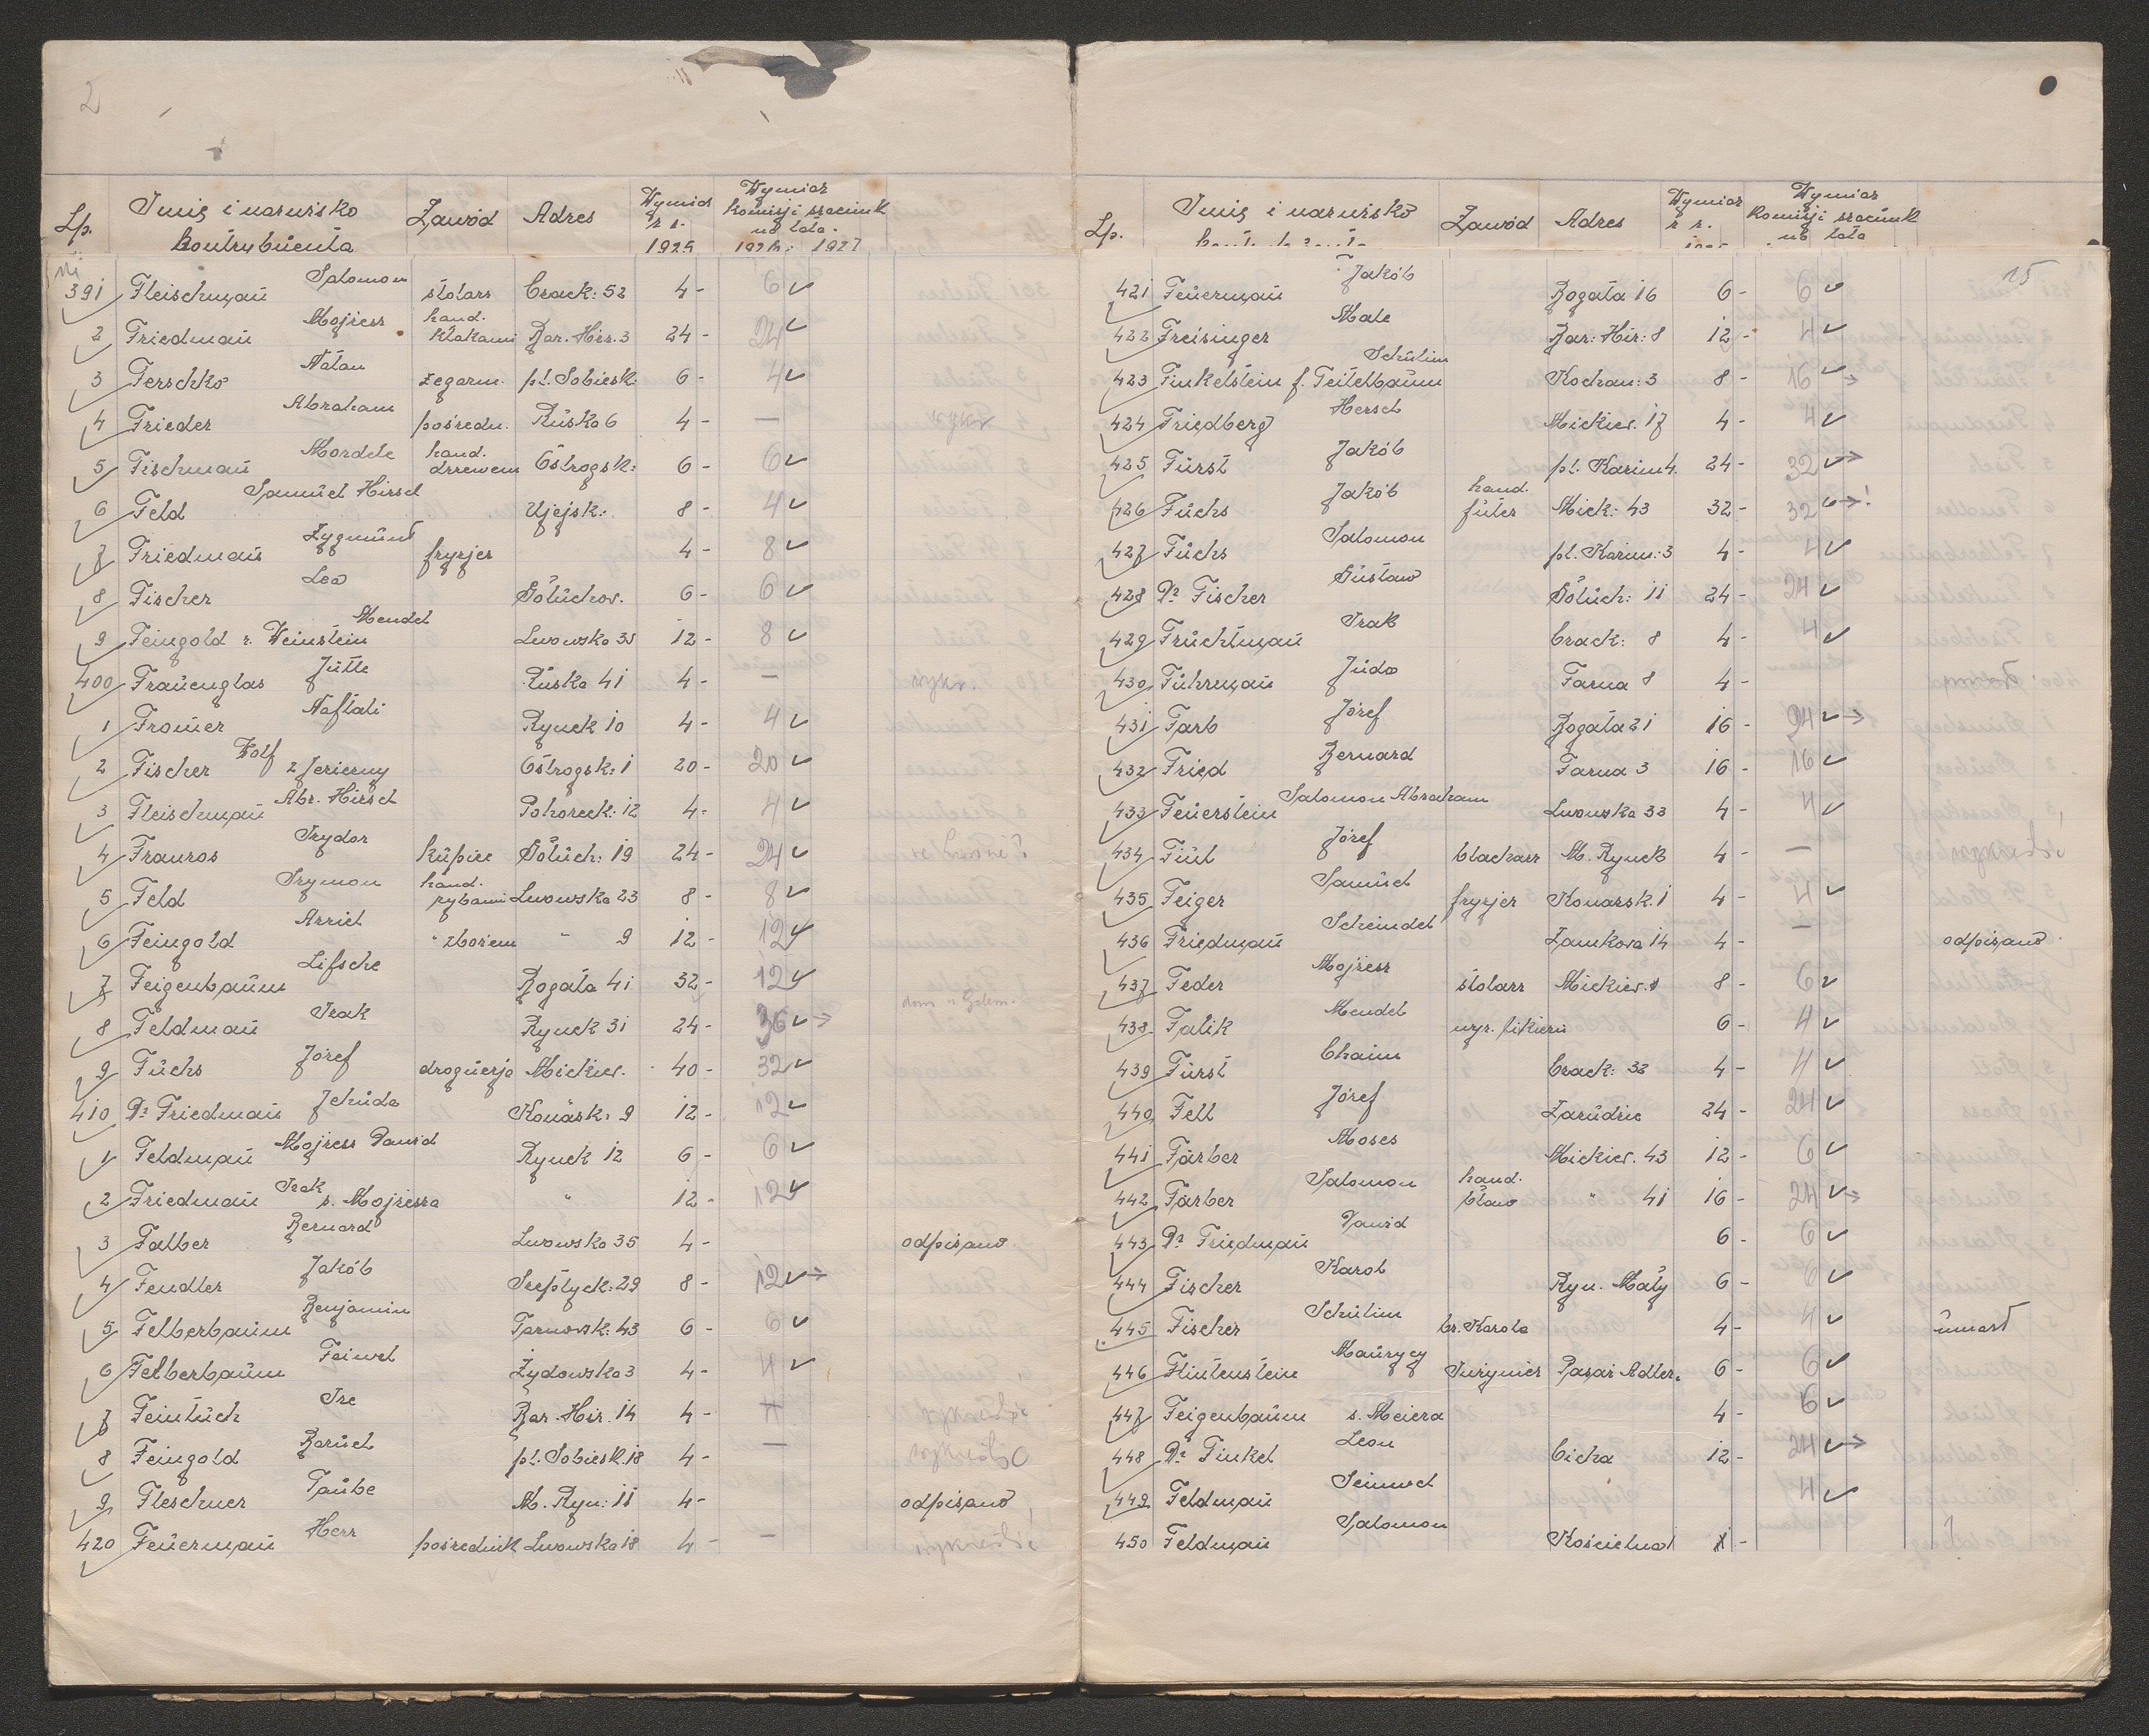 2
Lp. Imię i nazwisko kontrybuenta Zawód Adres Wymiar z r. 1925 Wymiar komisji szacunk na lata 1926 i 1927
391 Fleischman Salomon stolarz Czack: 52 4- 6
2 Friedman Mojżesz hand. kłakami Bar. Hir. 3 24- 24
3 Ferschko Natan zegarm. pl. Sobiesk. 6- 4
4 Frieder Abraham pośredn. Ruska 6 4- —
5 Fischman Mordche hand. drzewem Ostrogsk: 6- 6
6 Feld Samuel Hirsch Ujejsk: 8- 4
7 Friedman Zygmunt fryzjer 4- 8
8 Fischer Lea Gołuchow. 6- 6
9 Feingold r. Weinstein Mendel Lwowska 35 12- 8
400 Frauenglas Jütte Ruska 41 4- — wykr.
1 Fromer Naftali Rynek 10 4- 4
2 Fischer Wolf z Jezierny Ostrogsk: 1 20- 20
3 Fleischman Abr. Hirsch Pohoreck: 12 4- 4
4 Frauros Izydor kupiec Gołuch: 19 24- 24
5 Feld Szymon hand. rybami Lwowska 23 8- 8
6 Feingold Arrich " zbożem " 9 12- 12
7 Feigenbaum Lifsche Rogata 41 32- 12
8 Feldman Izak Rynek 31 24- 36
9 Fuchs Józef droguerja Mickiew. 40- 32
410 Dr Friedman Jehuda Konarsk: 9 12- 12
1 Feldman Mojżesz Dawid Rynek 12 6- 6
2 Friedman Izak s. Mojżesza " 12- 12
3 Falber Bernard Lwowska 35 4- odpisano
4 Fendler Jakób Szeptyck: 29 8- 12
5 Felberbaum Benjamin Tarnowsk: 43 6- 6
6 Felberbaum Feiwel Żydowska 3 4- 4
7 Feintuch Ire Bar. Hir. 14 4- wykreślić
8 Feingold Baruch pl. Sobiesk. 18 4- — wykreślić
9 Fleschner Taube M. Ryn: 11 4- odpisano
420 Feuerman Herz pośrednik Lwowska 18 4- — wykreślić
15
Lp. Imię i nazwisko Zawód Adres Wymiar z r. Wymiar komisji szacunk na lata
421 Feuerman Jakób Rogata 16 6- 6
422 Freisinger Male Bar: Hir: 8 12- 4
423 Finkelstein f. Teitelbaum Schulim Kochan: 3 8- 16
424 Friedberg Hersch Mickiew. 17 4- 4
425 Fürst Jakób pl. Kazim 4. 24- 32
426 Fuchs Jakób hand. futer Mick: 43 32- 32 !
427 Fuchs Salomon pl. Kazim: 3 4- 4
428 Dr Fischer Gustaw Gołuch: 11 24- 24
429 Fruchtman Izak Czack: 8 4- 4
430 Fuhrman Juda Farna 8 4-
431 Farb Józef Rogata 21 16- 24
432 Fried Bernard Farna 3 16- 16
433 Feuerstein Salomon Abraham Lwowska 33 4- 4
434 Fiul Józef blacharz M. Rynek 4- —
435 Feiger Samuel fryzjer Konarsk. 1 4- 4
436 Friedman Scheindel Zamkowa 14 4- — odpisano
437 Feder Mojżesz stolarz Mickiew. 8 8- 6
438 Falik Mendel wyr. likieru 6- 4
439 Fürst Chaim Czack: 32 4- 4
440 Fell Józef Zarudzie 24- 24
441 Färber Moses Mickiew. 43 12- 6
442 Färber Salomon hand. bław " 41 16- 24
443 Dr Friedman Dawid 6- 6
444 Fischer Karol Ryn. Mały 6- 6
445 Fischer Schulim br. Karola 4- 4 umarł
446 Flintenstein Maurycy Inżynier Pasaż Adlera 6- 6
447 Feigenbaum s. Meiera 4- 6
448 Dr Finkel Leon Cicha 12- 24
449 Feldman Seinwel 4
450 Feldman Salomon Kościelna 1 -